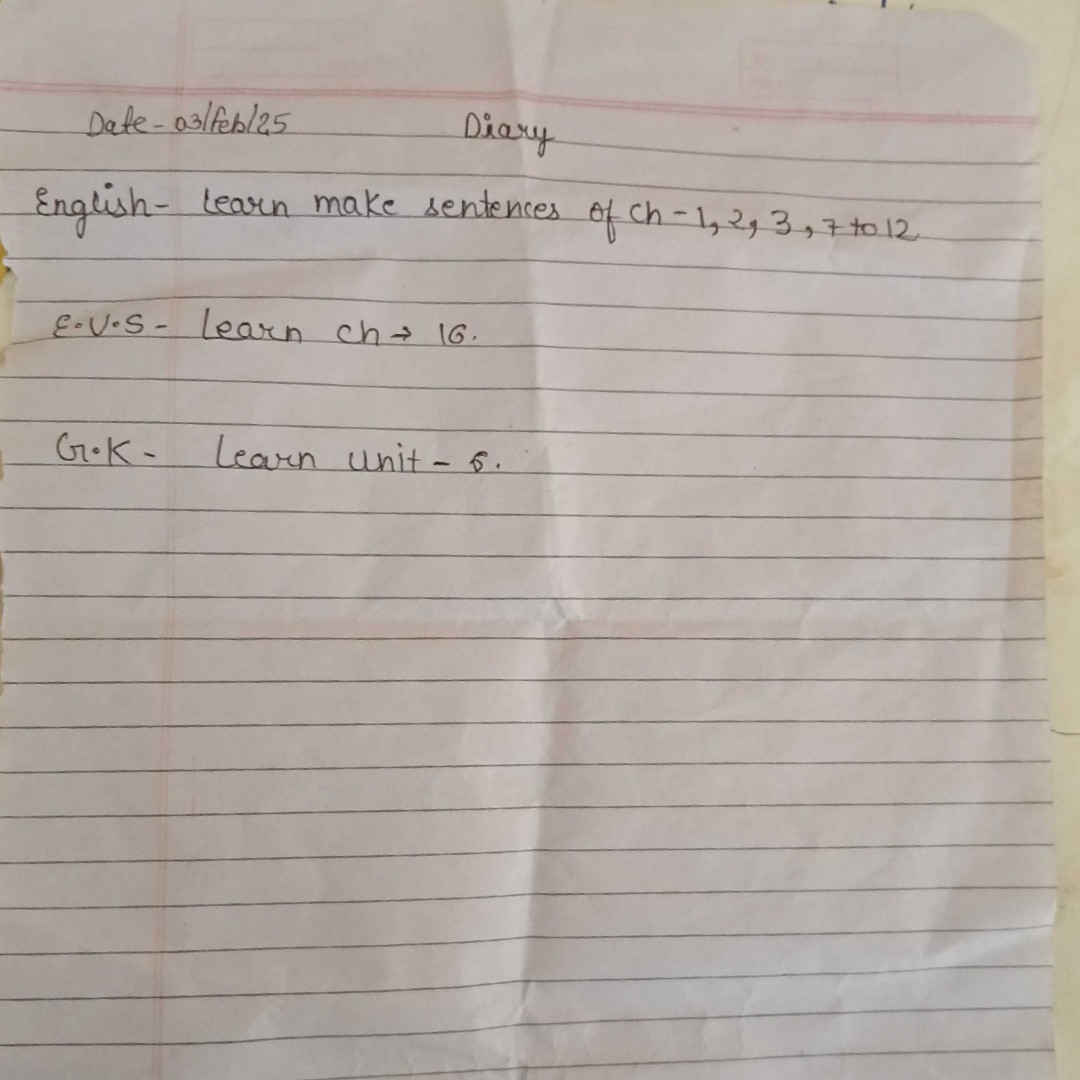 Date - 03/feb/25 Diary
English - Learn make sentences of ch - 1, 2, 3, 7 to 12
E.V.S - Learn ch → 16.
G.K - Learn unit - 6.